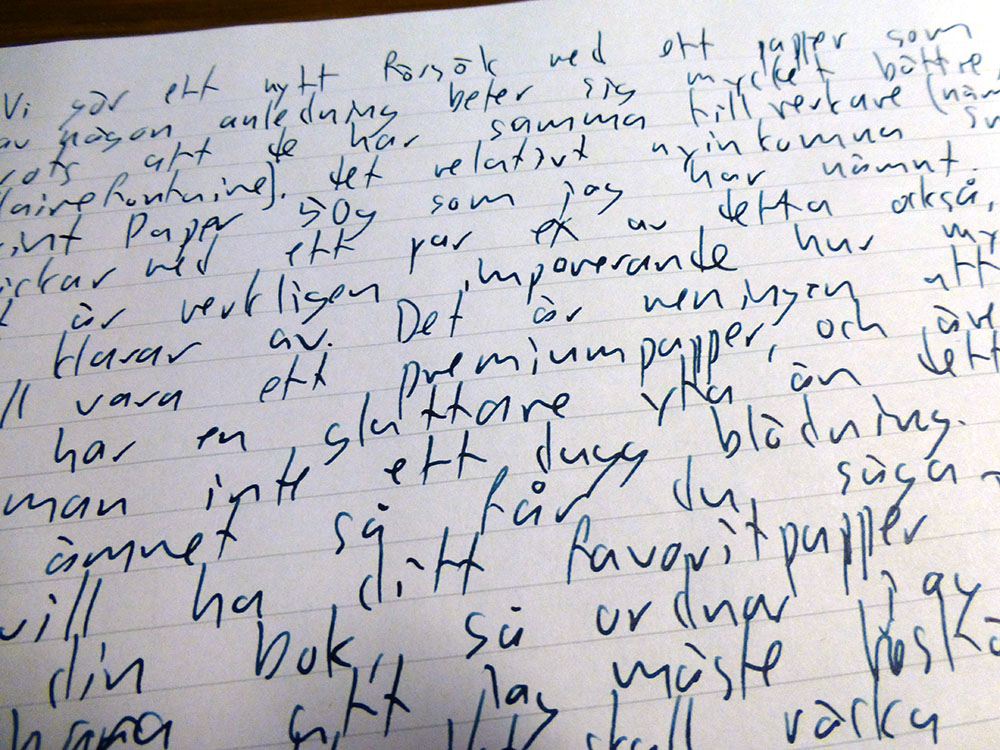 Vi gör ett nytt försök med ett papper som
av någon anledning beter sig mycket bättre,
rots att de har samma tillverkare (näm
lairefontaine). Det relativt nyinkomna Sm
int Paper 50g som jag har nämnt.
ickar med ett par ex av detta också,
t är verkligen imponerande hur my
klarar av. Det är meningen att
ll vara ett premiumpapper, och äve
har en slättare yta än dett
man inte ett dugg blödning.
ämnet så får du säga
vill ha ditt favoritpapper
din bok, så ordnar jag
bara att jag måste
skall värka